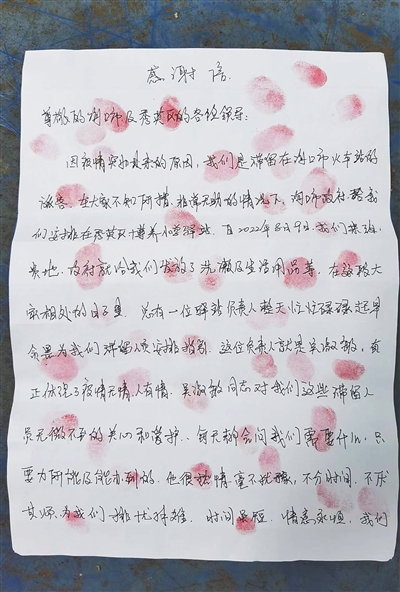 感谢信
尊敬的海口市及秀英区的各位领导:
因疫情突如其来的原因,我们是滞留在海口市火车站的
旅客。在大家不知所措,非常无助的情况下,海口市政府将我
们安排在秀英区 小学驿站。自2022年8月9日我们来驻
贵地,政府就给我们发放了洗漱及生活用品等,在这段大
家相处的日子里,总有一位驿站负责人整天忙忙碌碌起早
贪黑为我们滞留人员安排 。这位负责人就是吴淑敏,真
正体现了疫情无情人有情。吴淑敏同志对我们这些滞留人
员无微不至的关心和爱护..每天都会问我们需要什么,只
要力所能及能办到的。他很热情,毫不犹豫,不分时间,不厌
其烦,为我们排忧解难。时间虽短,情意永恒,我们